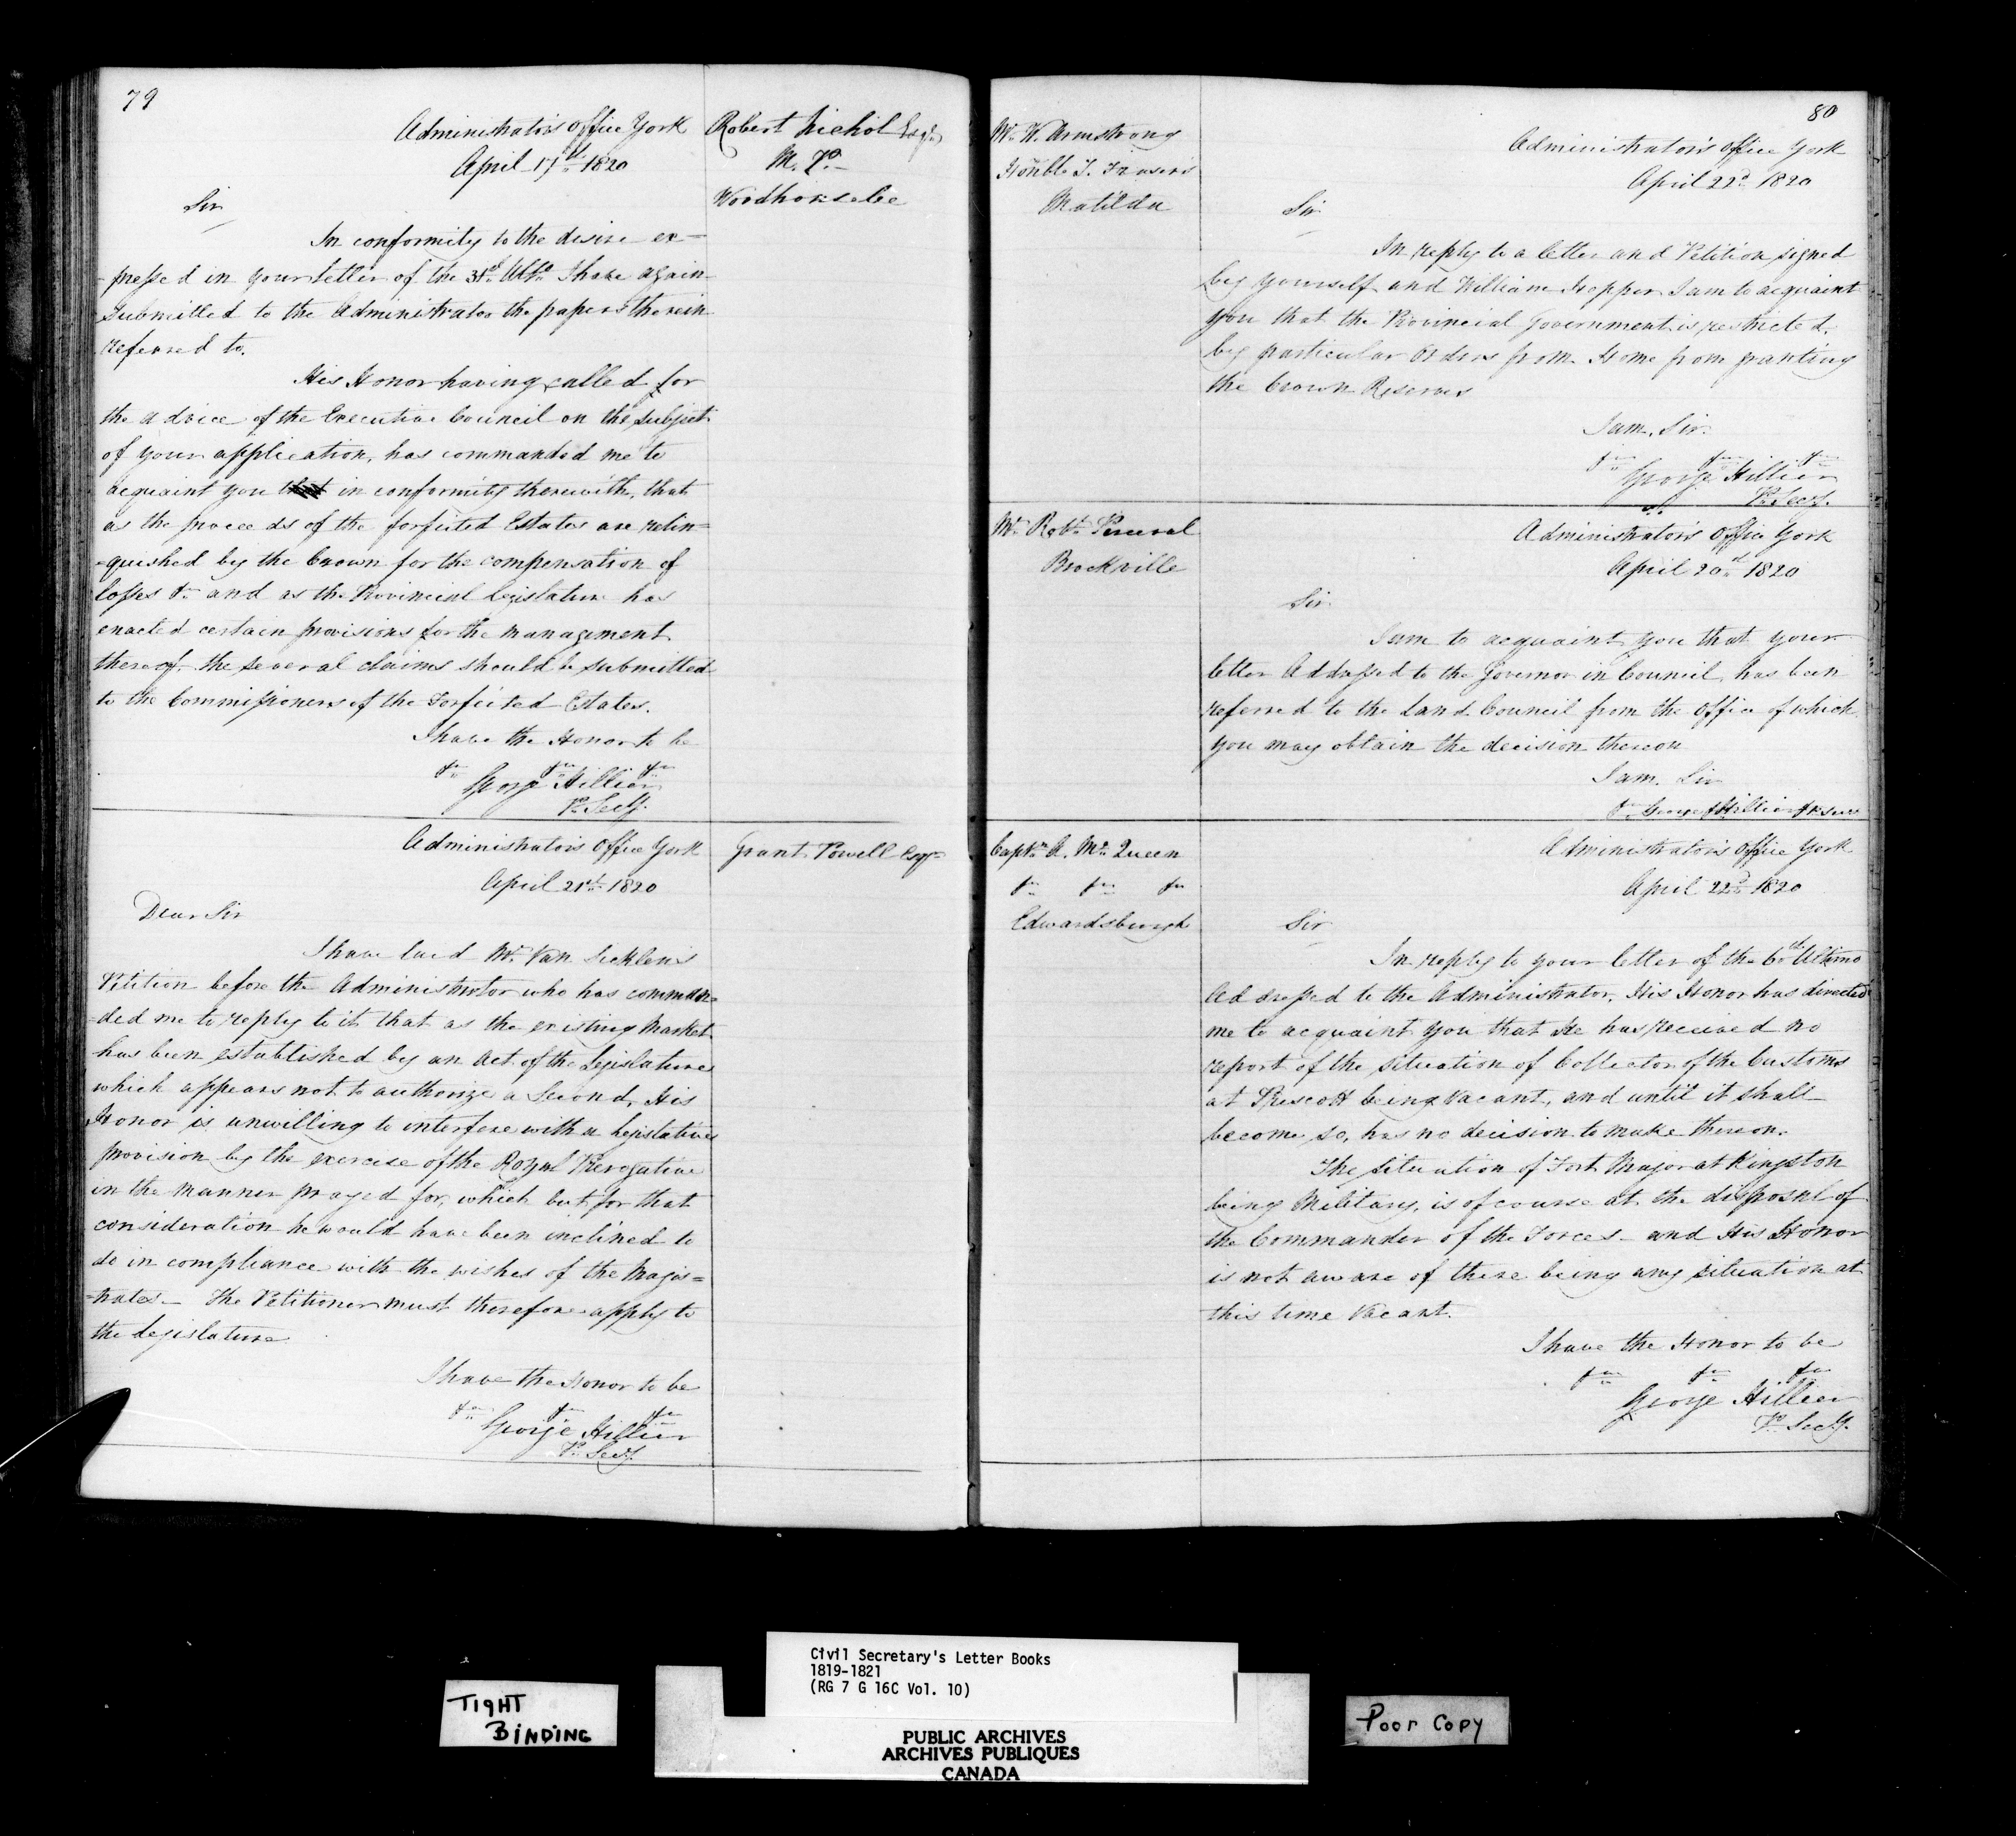 79
Administrator's Office York
April 17th 1820
Robert Nichol Esqr
M. P.
Woodhouse &c
Sir
In conformity to the desire ex-
-pressed in your letter of the 31st Ulto I have again
Submitted to the Administrator the papers therein
referred to.
His Honor having called for
the advice of the Executive Council on the subject
of your application, has commanded me to
acquaint you that in conformity therewith, that
as the proceeds of the forfeited Estates are relin=
=quished by the Crown for the compensation of
losses &c and as the Provincial Legislature has
enacted certain provisions for the management
thereof, the several claims should be submitted
to the Commissioners of the Forfeited Estates.
I have the Honor to be
&c &c &c
George Hillier
P. Secy.
Administrator's Office York
April 21st 1820
Grant Powell Esqr
Dear Sir
I have laid Mr. Van Sicklens
Petition before the Administrator who has comman=
=ded me to reply to it that as the existing Market
has been established by an Act of the Legislature
which appears not to authorize a Second, His
Honor is unwilling to interfere with a Legislative
provision by the exercise of the Royal Prerogative
in the manner prayed for, which but for that
consideration he would have been inclined to
do in compliance with the wishes of the Magis=
=trates - The Petitioner must therefore apply to
the Legislature
I have the Honor to be
&c &c &c
George Hillier
P. Secy.
80
Mr. W. Armstrong
Honble T. Fraser's
Matilda
Administrator's Office York
April 22d 1820
Sir
In reply to a letter and Petition signed
by yourself and William Hopper I am to acquaint
you that the Provincial Government is restricted
by particular Orders from Home from granting
the Crown Reserves
I am, Sir
&c &c &c
George Hillier
P. Secy.
Mr. Robt. Perceval
Brockville
Administrator's Office York
April 20th 1820
Sir
I am to acquaint you that your
letter Addressed to the Governor in Council, has been
referred to the Land Council from the Office of which
you may obtain the decision thereon
I am. Sir
&c George Hillier P. Secy
Captn A. Mc Queen
&c &c &c
Edwardsburgh
Administrator's Office York
April 22d 1820
Sir
In reply to your letter of the 6th Ultimo
Addressed to the Administrator, His Honor has directed
me to acquaint you that He has received no
report of the situation of Collector of the Customs
at Prescott being vacant, and until it shall
become so, has no decision to make thereon.
The situation of Fort Major at Kingston
being Military, is of course at the disposal of
the Commander of the Forces - and His Honor
is not aware of there being any situation at
this time vacant.
I have the Honor to be
&c &c &c
George Hillier
P. Secy.
TIGHT
BINDING
Civil Secretary's Letter Books
1819-1821
(RG 7 G 16C Vol. 10)
PUBLIC ARCHIVES
ARCHIVES PUBLIQUES
CANADA
Poor Copy